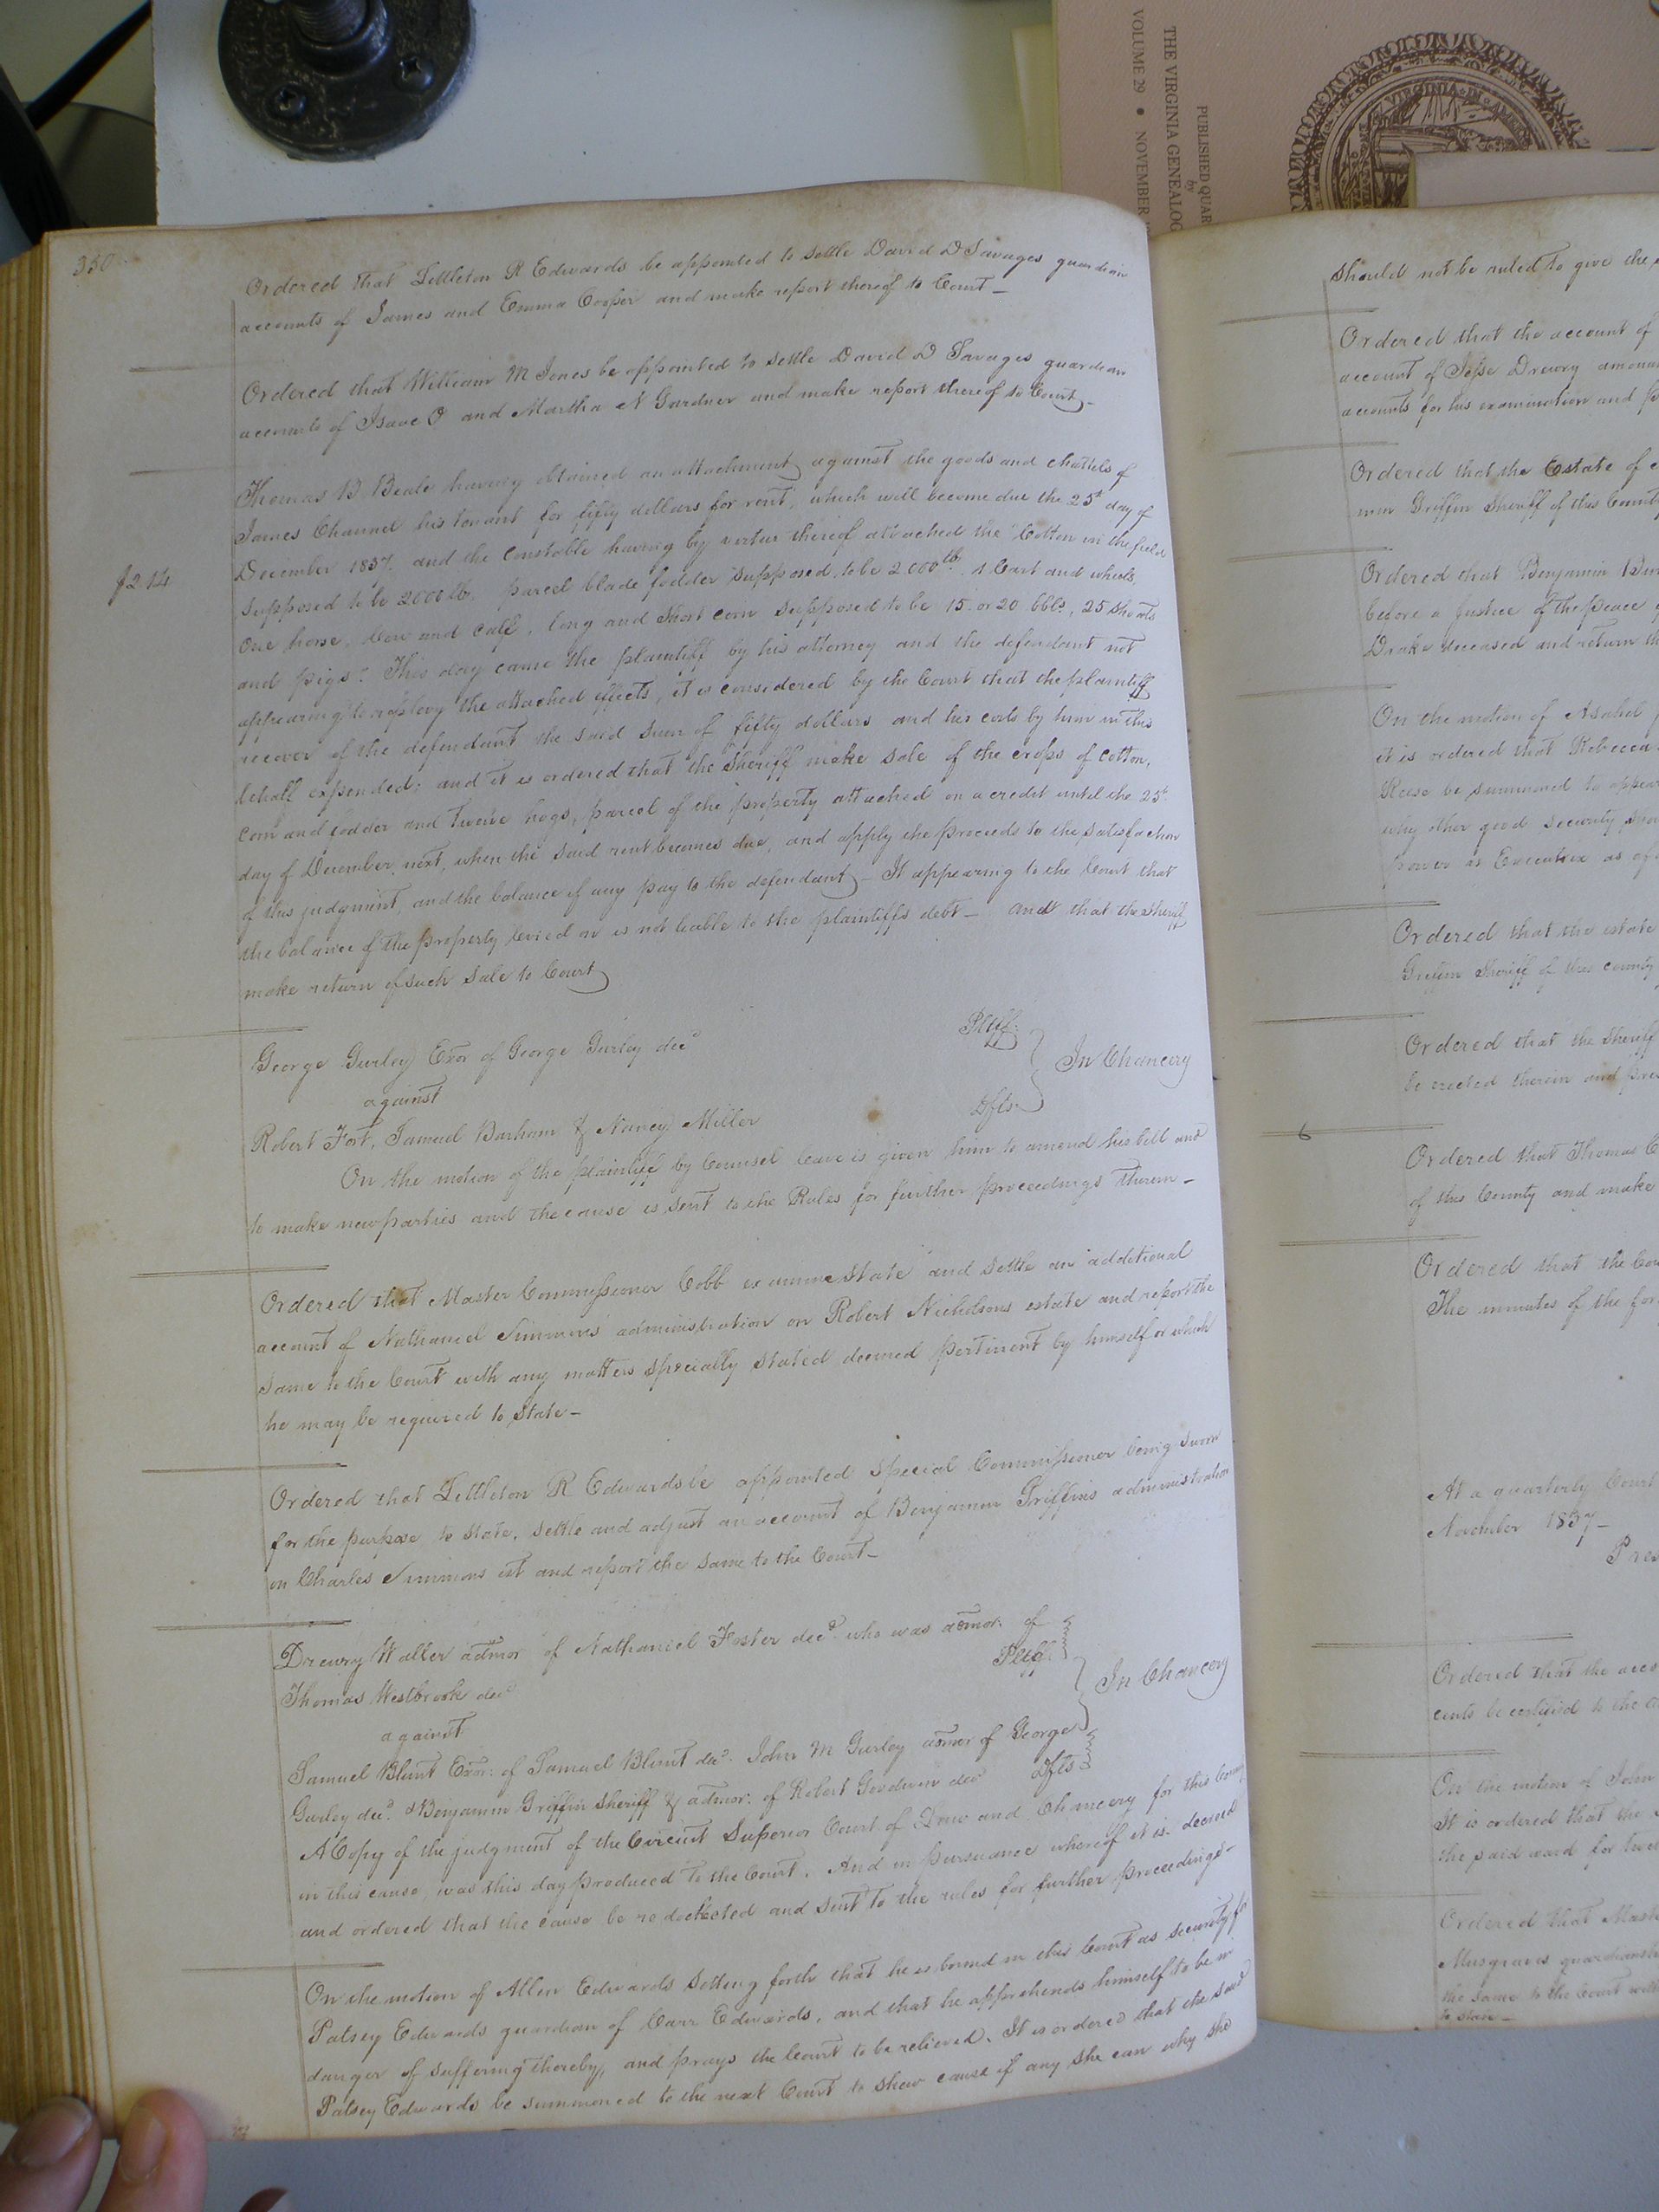 PUBLISHED QUAR
by
THE VIRGINIA GENEALOG
VOLUME 29 • NOVEMBER
VIRGINIA IN A
350
Ordered that Littleton R Edwards be appointed to settle David D Savages guardian
accounts of James and Emma Cooper and make report thereof to Court—
Ordered that William M Jones be appointed to settle David D Savages guardian
accounts of Isaac O and Martha N Gardner and make report thereof to Court—
Thomas B Beale having obtained an attachment against the goods and chattels of
James Channel his tenant for fifty dollars for rent, which will become due the 25th day of
December 1837. and the Constable having by virtue thereof attached the Cotton in the field
$2.14
supposed to be 2000 lb. parcel blade fodder supposed to be 2000 lb. 1 Cart and wheels,
One horse, Cow and calf, long and short corn supposed to be 15 or 20 bbls, 25 shoats
and pigs: This day came the plaintiff by his attorney and the defendant not
appearing to replevy the attached effects, it is considered by the Court that the plaintiff
recover of the defendant the said sum of fifty dollars and his costs by him in this
behalf expended; and it is ordered that the Sheriff make sale of the crops of cotton,
corn and fodder and twelve hogs, parcel of the property attached on a credit until the 25th
day of December next, when the said rent becomes due, and apply the proceeds to the satisfaction
of this judgment, and the balance if any pay to the defendant— It appearing to the Court that
the balance of the property levied on is not liable to the plaintiffs debt— and that the sheriff
make return of such sale to Court
George Gurley Exor of George Gurley decd Pltff.
against In Chancery
Robert Fort, Samuel Barham & Nancy Miller Dfts.
On the motion of the plaintiff by Counsel leave is given him to amend his bill and
to make new parties and the cause is sent to the Rules for further proceedings therein—
Ordered that Master Commissioner Cobb examine state and settle an additional
account of Nathaniel Simmons' administration on Robert Nicholsons estate and report the
same to the Court with any matters specially stated deemed pertinent by himself or which
he may be required to state—
Ordered that Littleton R Edwards be appointed special Commissioner being sworn
for the purpose to state, settle and adjust an account of Benjamin Griffins administration
on Charles Simmons est and report the same to the Court—
Drewry Waller admor of Nathaniel Foster decd. who was admor. of
Thomas Westbrook decd Pltff
against In Chancery
Samuel Blunt Exor: of Samuel Blunt decd. John M Gurley admor of George
Gurley decd. & Benjamin Griffin Sheriff & admor. of Robert Goodwin decd Dfts
A Copy of the judgment of the Circuit Superior Court of Law and Chancery for this County
in this cause, was this day produced to the Court. And in pursuance whereof it is decreed
and ordered that the cause be redocketed and sent to the rules for further proceedings—
On the motion of Allen Edwards setting forth that he is bound in this Court as security for
Patsey Edwards guardian of Carr Edwards, and that he apprehends himself to be in
danger of suffering thereby, and prays the Court to be relieved. It is ordered that the said
Patsey Edwards be summoned to the next Court to shew cause if any she can why she
should not be ruled to give the
Ordered that the account of
account of Jesse Drewry amoun
accounts for his examination and p
Ordered that the Estate of
min Griffin Sheriff of this County
Ordered that Benjamin
before a Justice of the peace
Drake deceased and return th
On the motion of Asahel
it is ordered that Rebecca
Reese be summoned to appear
why other good security shou
power as Executrix as of
Ordered that the estate
Griffin Sheriff of this county
Ordered that the Sheriff
be erected therein and pres
6
Ordered that Thomas C
of this County and make
Ordered that the Cou
The minutes of the for
At a quarterly Court
November 1837—
Pres
Ordered that the acco
cents be certified to the
On the motion of John
It is ordered that the
the said ward for twel
Ordered that Mast
Musgraves guardiansh
the same to the Court with
to state—